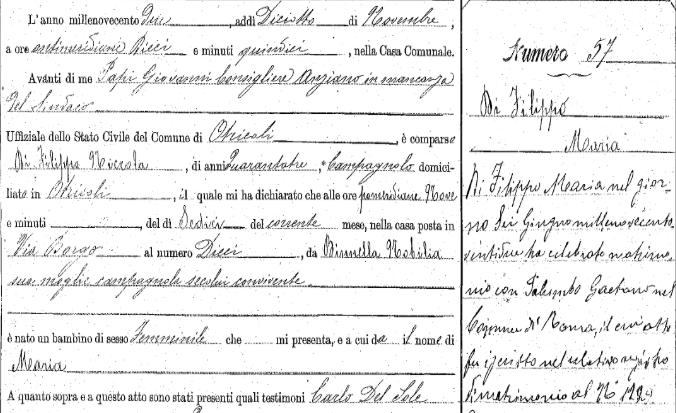 L'anno millenovecento Due, addì Diciotto di Novembre,
a ore antimeridiane Dieci e minuti quindici, nella Casa Comunale.
Avanti di me Papi Giovanni Consigliere Anziano in mancanza
del Sindaco
Uffiziale dello Stato Civile del Comune di Otricoli, è comparso
Di Filippo Nicola, di anni Quarantatre, Campagnolo domici-
liato in Otricoli, il quale mi ha dichiarato che alle ore pomeridiane Nove
e minuti del dì Sedici del corrente mese, nella casa posta in
Via Borgo al numero Dieci, da Minnella Nobilia
sua moglie campagnola secolui convivente
è nato un bambino di sesso Femminile che mi presenta, e a cui da il nome di
Maria
A quanto sopra e a questo atto sono stati presenti quali testimoni Carlo Del Sole
Numero 57
Di Filippo
Maria
Di Filippo Maria nel gior-
no Sei Giugno millenovecento
ventidue ha celebrato matrimo-
nio con Palombo Gaetano nel
Comune di Roma, il cui atto
fu iscritto nel relativo registro
di matrimonio al N°